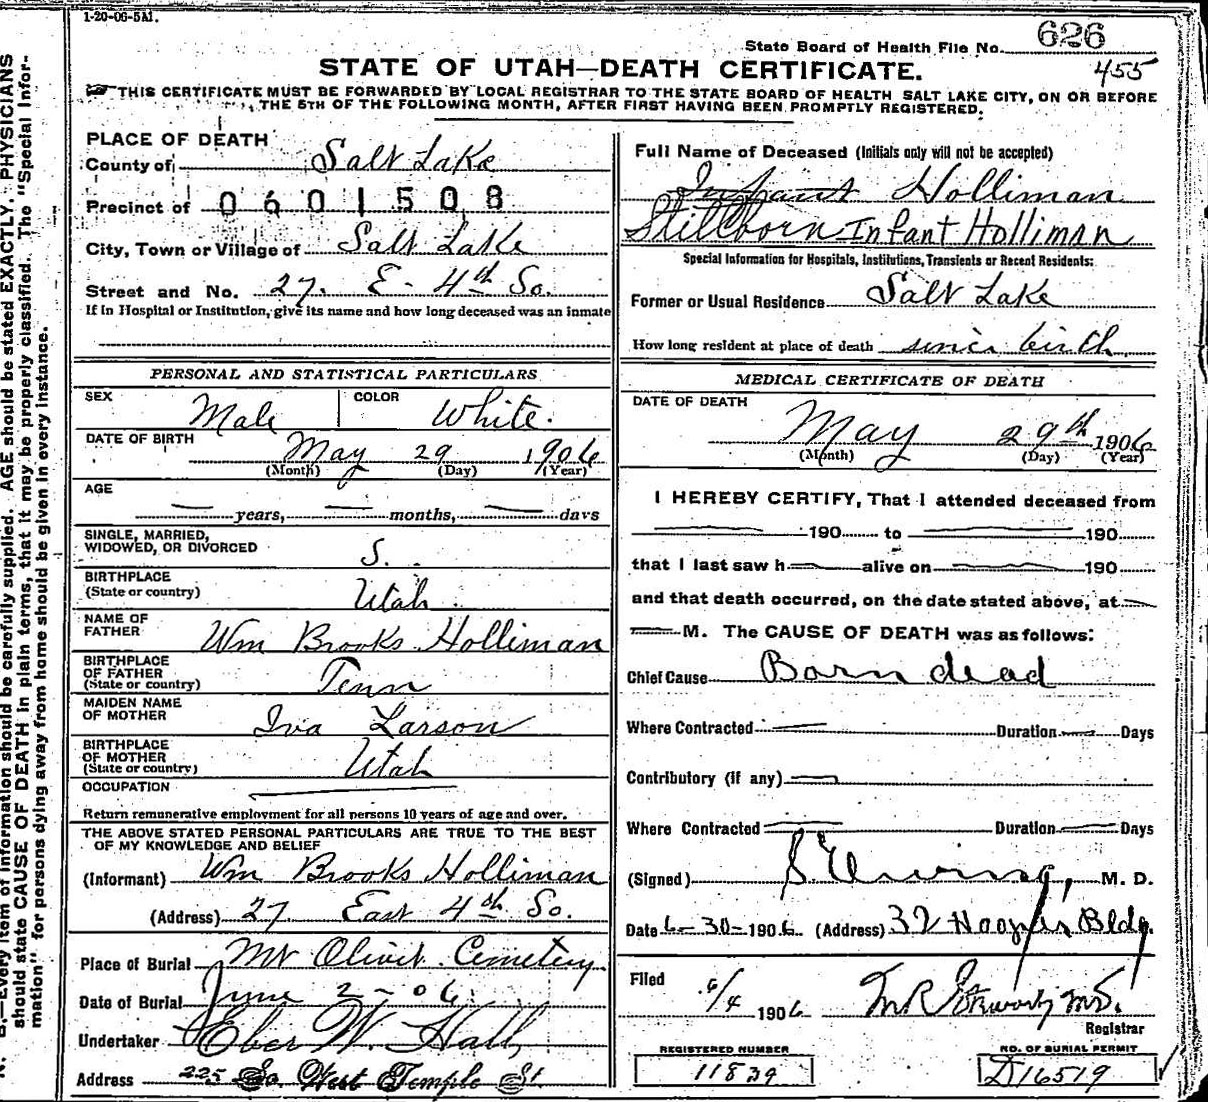 1-20-06-5M.
State Board of Health File No. 626
455
STATE OF UTAH—DEATH CERTIFICATE.
THIS CERTIFICATE MUST BE FORWARDED BY LOCAL REGISTRAR TO THE STATE BOARD OF HEALTH SALT LAKE CITY, ON OR BEFORE
THE 5TH OF THE FOLLOWING MONTH, AFTER FIRST HAVING BEEN PROMPTLY REGISTERED.
PLACE OF DEATH
County of Salt Lake
Precinct of 0601508
City, Town or Village of Salt Lake
Street and No. 27. E. 4th So.
If in Hospital or Institution, give its name and how long deceased was an inmate
PERSONAL AND STATISTICAL PARTICULARS
SEX Male COLOR White.
DATE OF BIRTH
May 29 1906
(Month) (Day) (Year)
AGE
years, months, days
SINGLE, MARRIED,
WIDOWED, OR DIVORCED S.
BIRTHPLACE
(State or country) Utah
NAME OF
FATHER Wm Brooks Holliman
BIRTHPLACE
OF FATHER
(State or country) Tenn
MAIDEN NAME
OF MOTHER Iva Larson
BIRTHPLACE
OF MOTHER
(State or country) Utah
OCCUPATION
Return remunerative employment for all persons 10 years of age and over.
THE ABOVE STATED PERSONAL PARTICULARS ARE TRUE TO THE BEST
OF MY KNOWLEDGE AND BELIEF
(Informant) Wm Brooks Holliman
(Address) 27 East 4th So.
Place of Burial Mt Olivit Cemetery.
Date of Burial June 2-06
Undertaker Eber W. Hall
Address 225 So. West Temple St.
Full Name of Deceased (Initials only will not be accepted)
Infant Holliman
Stillborn Infant Holliman
Special Information for Hospitals, Institutions, Transients or Recent Residents:
Former or Usual Residence Salt Lake
How long resident at place of death since birth
MEDICAL CERTIFICATE OF DEATH
DATE OF DEATH
May 29th 1906
(Month) (Day) (Year)
I HEREBY CERTIFY, That I attended deceased from
190 to 190
that I last saw h alive on 190
and that death occurred, on the date stated above, at
M. The CAUSE OF DEATH was as follows:
Chief Cause Born dead
Where Contracted Duration Days
Contributory (if any)
Where Contracted Duration Days
(Signed) S. Ewing, M. D.
Date 6-30-1906 (Address) 32 Hooper Bldg.
Filed 6/4 1906 M.D.
Registrar
REGISTERED NUMBER
11839
NO. OF BURIAL PERMIT
D16519
N. B.—Every item of information should be carefully supplied. AGE should be stated EXACTLY. PHYSICIANS
should state CAUSE OF DEATH in plain terms, that it may be properly classified. The "Special Infor-
mation" for persons dying away from home should be given in every instance.